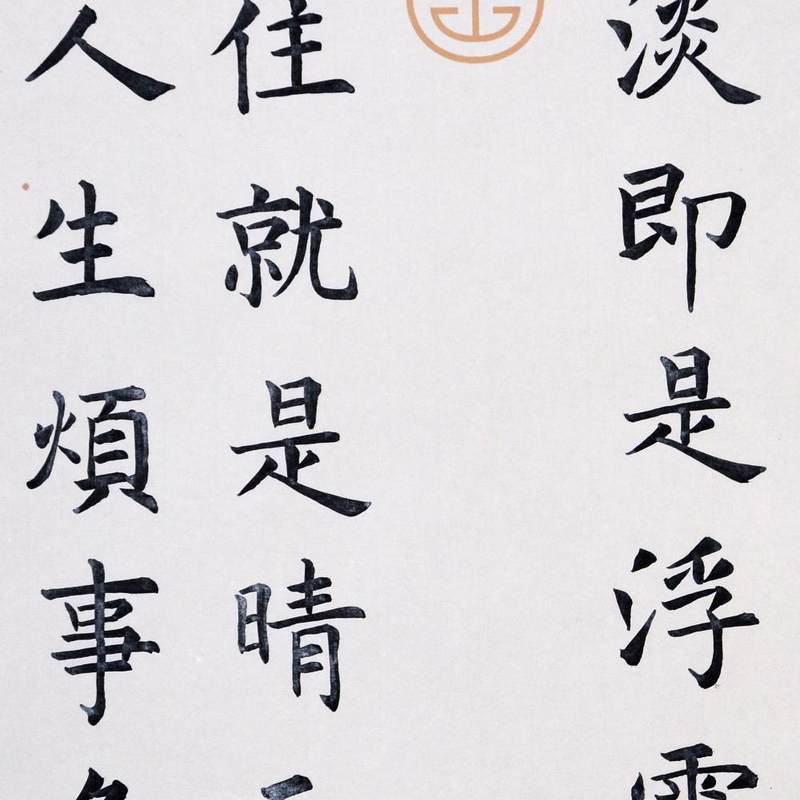 淡即是浮
住就是晴
人生煩事